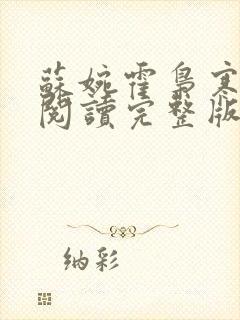 蘇婉霍梟寒
閱讀完整版
纳彩